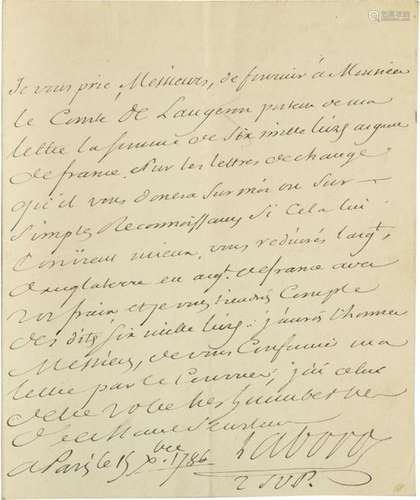 Je vous prie, Messieurs, de fournir à Monsieur
le Comte de Langeron porteur de ma
lettre la somme de six mille livres argent
de france, sur les lettres de change
qu'il vous donera sur moi ou sur
simples Reconnoissances si cela lui
Convient mieux, vous reduirés l'argt,
d'angleterre en argt. de france avec
vos fraix et je vous tiendrai Compte
des dits six mille livres. j'aurai l'honneur
Messieurs, de vous Confirmer ma
lettre par le Courrier; j'ai celui
d'être votre très humble et très
obeissant Serviteur
a Paris le 15 Xbre. 1786
T.S.V.P.